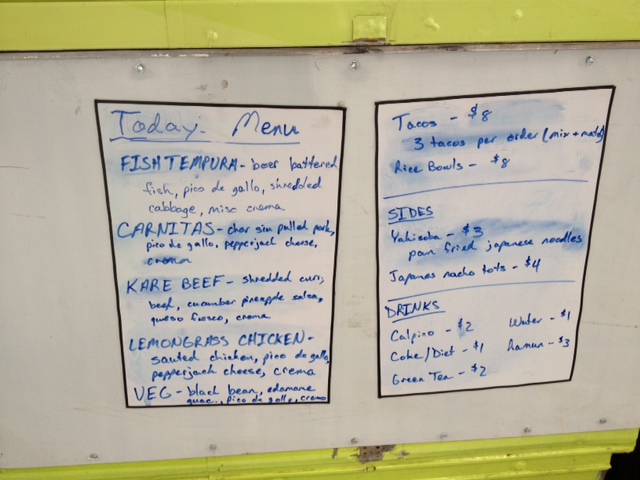 Today: Menu
FISH TEMPURA - beer battered
fish, pico de gallo, shredded
cabbage, miso crema
CARNITAS - char siu pulled pork,
pico de gallo, pepperjack cheese,
crema
KARE BEEF - shredded curry
beef, cucumber pineapple salsa,
queso fresco, crema
LEMONGRASS CHICKEN -
sauted chicken, pico de gallo,
pepperjack cheese, crema
VEG - black bean, edamame
guac., pico de gallo, crema
Tacos - $8
3 tacos per order (mix + match)
Rice Bowls - $8
SIDES
Yakisoba - $3
pan fried japanese noodles
Japanese nacho tots - $4
DRINKS
Calpico - $2
Water - $1
Coke/Diet - $1
Ramun - $3
Green Tea - $2